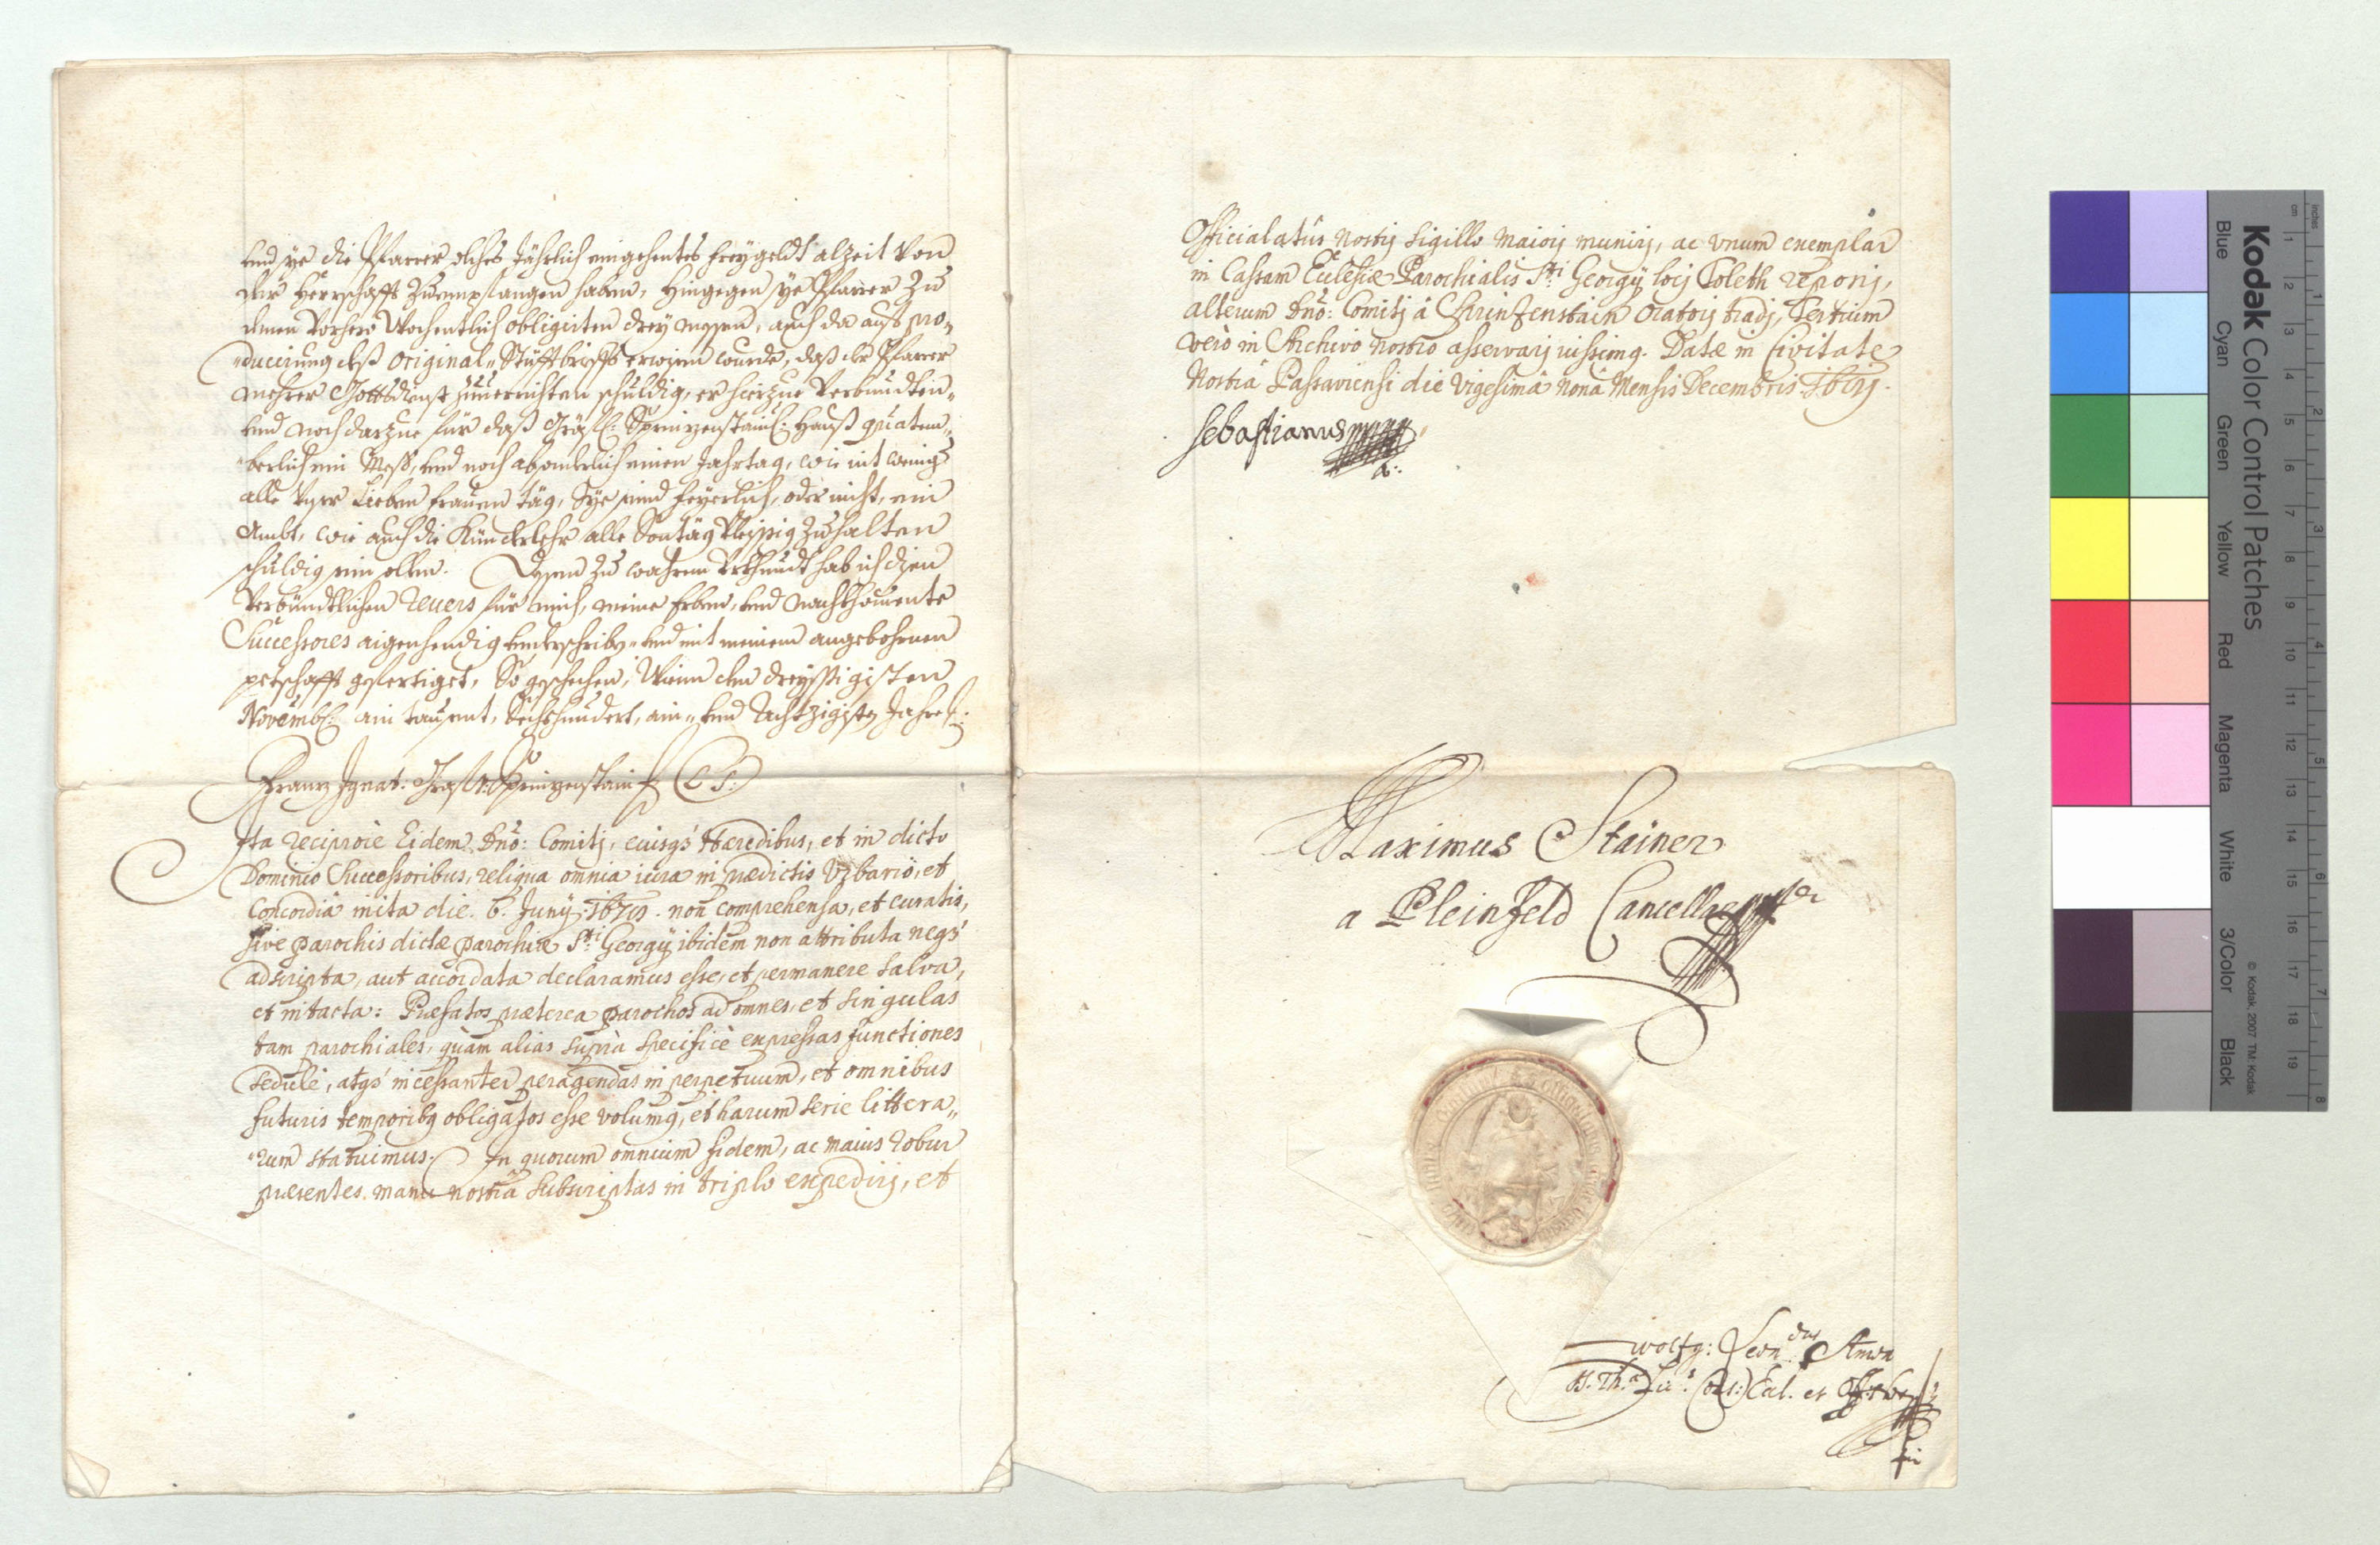 und sye die Pfarrer solches Jährlich eingehentes freygeldt alzeit von
der Herrschafft zu empfangen haben, Hingegen sye Pfarrer zu
denen vorhero Wochentlich obligirten drey messen, auch da auß pro-
"ducirung deß original-Stüfftbrieffs erwisen wurde, daß der Pfarrer
mehrer Gottsdienst zuuerrichten schuldig, er hierzue verbundten
und noch darzue für daß Gräfl: Sprinzenstain: Hauß quatem-
"berlich ein Meß, und noch absonderlich einen Jahrtag, wie nit wenig
alle unser Lieben frauen täg, Sye seind feyerlich, oder nicht, ein
Ambt, wie auch die Künderlehr alle Sontäg fleissig zuhalten
schuldig sein sollen. Dessen zu wahrem Urkhundt hab ich disen
verbündtlichen revers für mich, meine Erben, und nachkhomente
Successores aigenhendig underschriben und mit meinem angebohrnen
petschafft gefertiget, So geschehen, Wienn den dreyssigisten
Novemb: ain tausent, Sechshundert, ain- und Achtzigisten Jahrs:
Franz Ignat: Graf v: Sprinzenstain (L S:)
Ita reciprocè Eidem Dno: Comitj, eiusq3 Hæredibus, et in dicto
Dominio Successoribus, reliqua omnia iura in prædictis Urbario, et
Concordiâ inita die. 6. Junij. non comprehensa, et curatis,
sive parochis dictæ parochiæ Sti. Georgÿ ibidem non attributa neq3
adscripta, aut accordata declaramus esse, et permanere salva,
et intacta: Præfatos præterea parochos ad omnes, et singulas
tam parochiales, quàm alias suprà specificè expressas functiones
sedulè, atq3 incessanter peragendas in perpetuum, et omnibus
futuris temporibq obligatos esse volumq, et harum serie littera„
"rum statuimus. In quorum omnium fidem, ac maius robur
præsentes manu nostrâ subscriptas in triplo expedirj, et
Officialatûs nostrj Sigillo Maiorj munirj, ac unum exemplar
in Cassam Ecclesiæ Parochialis Sti. Georgÿ locj Toleth reponj,
alterum Dno: Comitj â Sprinzenstain Oratorj tradj, Tertium
verò in Archivo nostro asservarj iussimq. Datæ in Civitate
Nostrâ Passaviensi die Vigesimâ nonâ Mensis Decembris
Sebastianus
Maximus Stainer
a Pleinfeld Cancellar
Wolfg: